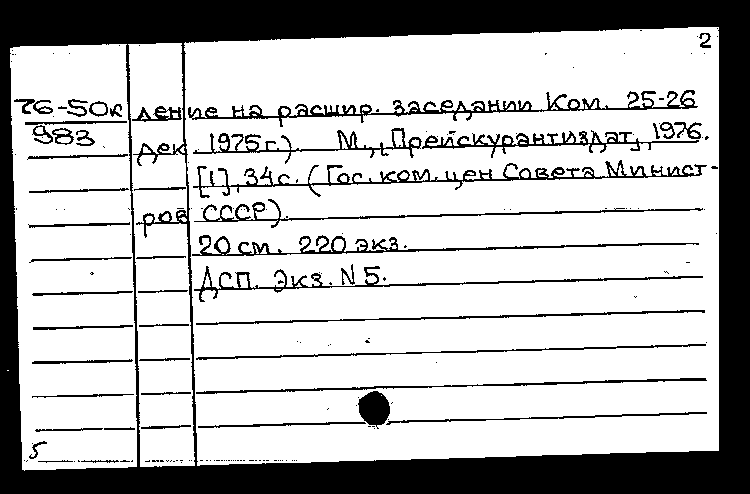 2
76-50к ление на расшир. заседании Ком. 25-26
983 дек. 1975г.). М., „Прейскурантиздат", 1976.
[1], 34с. (Гос. ком. цен Совета Министров
СССР).
20 см. 220 экз.
ДСП. Экз. N 5.
5